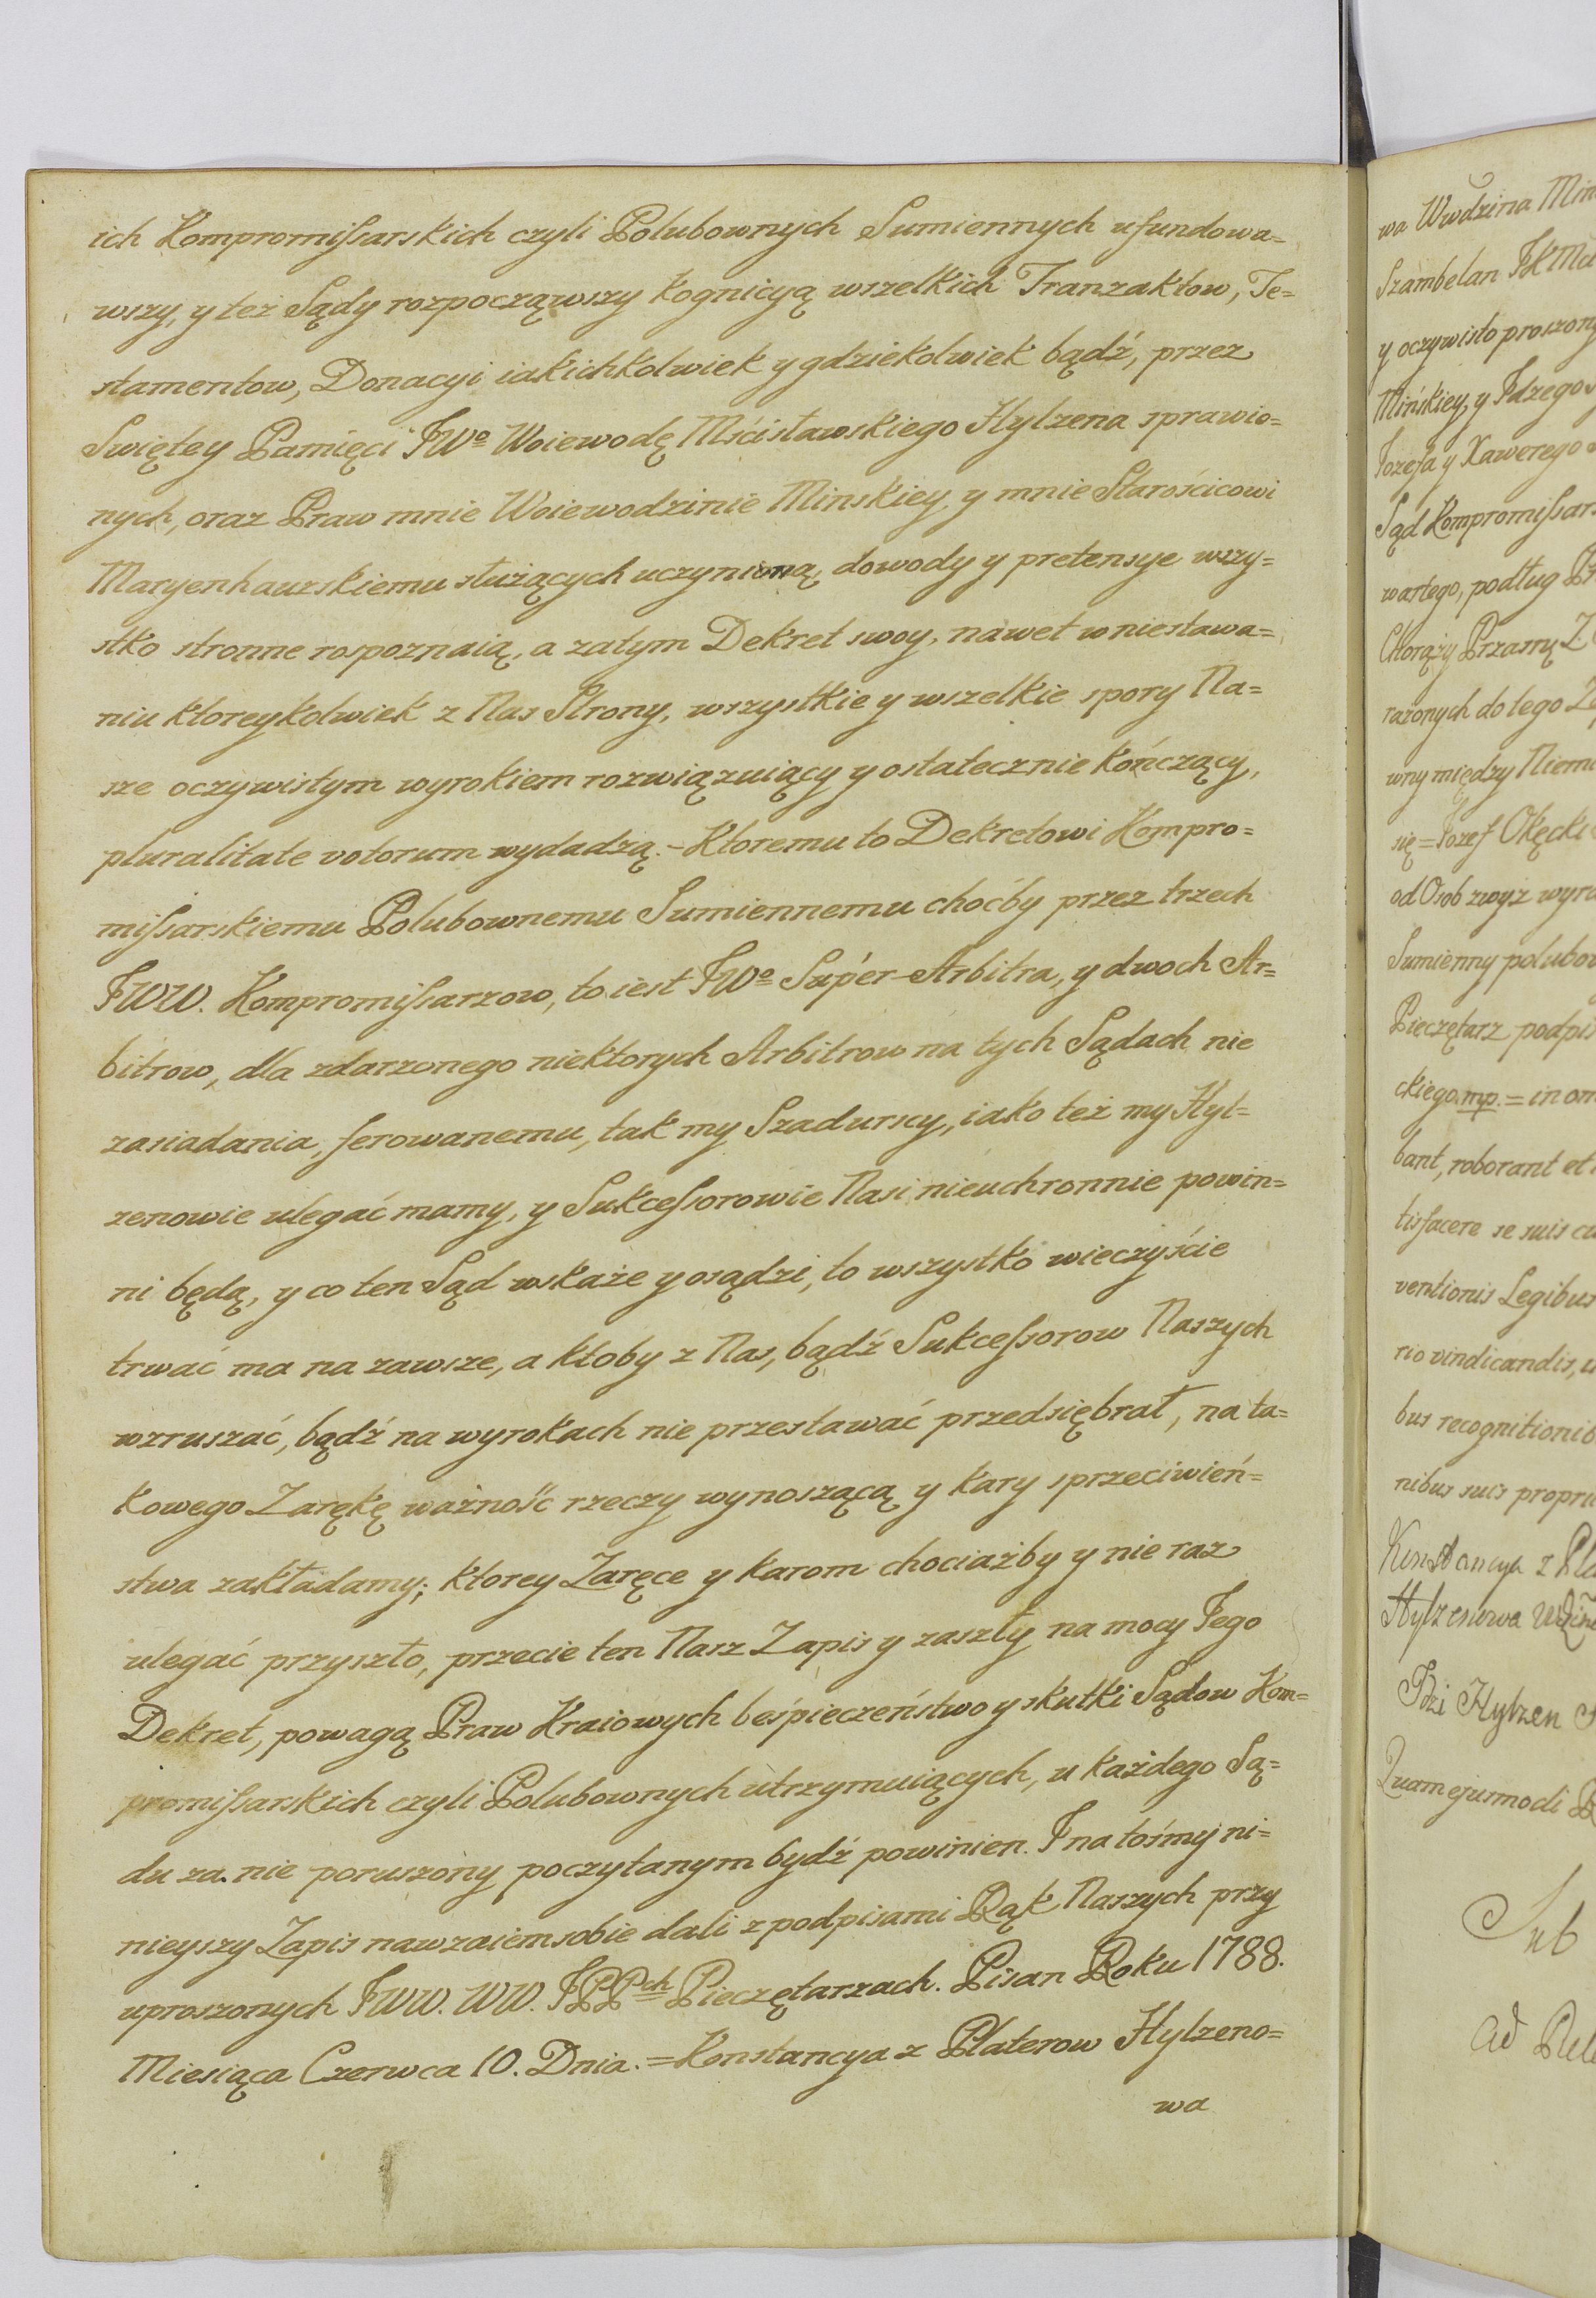 ich Kompromissarskich czyli Polubownych Sumiennych ufundowa=
wszy, y też Sądy rozpocząwszy kognicyą wszelkich Tranzaktow, Te=
stamentow, Donacyi iakichkolwiek y gdziekolwiek bądź, przez
Swiętey Pamięci JWo Woiewodę Mścisławskiego Hylzena sprawio=
nych, oraz Praw mnie Woiewodzinie Minskiey, y mnie Starościcowi
Maryenhauzskiemu służących uczynioną, dowody y pretensye wszy=
stko stronne rospoznaią, a zatym Dekret swoy, nawet w niestawa=
niu ktoreykolwiek z Nas Strony, wszystkie y wszelkie spory Na=
sze oczywistym wyrokiem rozwiązuiący y ostatecznie kończący,
pluralitate votorum wydadzą.- Ktoremu to Dekretowi Kompro=
missarskiemu Polubownemu Sumiennemu choćby przez trzech
JWW. Kompromissarzow, to iest JWo Super-Arbitra, y dwoch Ar=
bitrow, dla zdarzonego niektorych Arbitrow na tych Sądach nie
zasiadania, ferowanemu, tak my Szadurscy, iako też my Hyl=
zenowie ulegać mamy, y Sukcessorowie Nasi nieuchronnie powin=
ni będą, y co ten Sąd wskaże y osądzi, to wszystko wieczyście
trwać ma na zawsze, a ktoby z Nas, bądź Sukcessorow Naszych
wzruszać, bądź na wyrokach nie przestawać przedsiębrał, na ta=
kowego Zarękę ważność rzeczy wynoszącą y kary sprzeciwień=
stwa zakładamy; ktorey Zaręce y karom chociażby y nie raz
ulegać przyszło, przecie ten Nasz Zapis y zaszły na mocy Jego
Dekret, powagą Praw Kraiowych beśpieczeństwo y skutki Sądow Kom=
promissarskich czyli Polubownych utrzymuiących, u każdego Są=
du za nie poruszony poczytanym bydź powinien. I na tośmy ni=
nieyszy Zapis nawzaiem sobie dali z podpisami Rąk Naszych przy
uproszonych JWW. WW. JPPch Pieczętarzach. Pisan Roku 1788.
Miesiąca Czerwca 10. Dnia.=Konstancya z Platerow Hylzeno=
wa
wa Wwdzina
Szambelan JK
y oczywisto
Mińskiey, y
Jozefa y Xawerego
Sąd
wartego, podług
Chorąży
rażonych do tego
wny między
się=Jozef Okęcki
od Osob zwyż
Sumienny
Pieczętarz
ckiego.mp.=in
bant, roborant et
tisfacere se suis
ventionis Legibus
rio vindicandis,
bus
nibus suis
Konstancya z
Hylzenowa
Hylzen
Quam ejusmodi
Sub
Ad